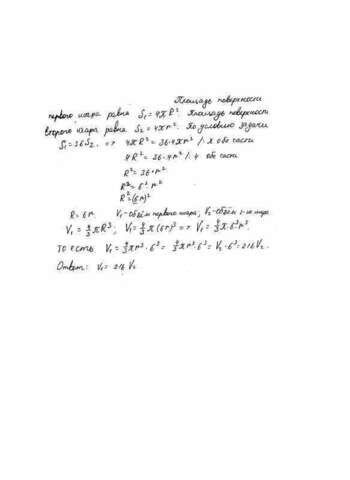 Площадь поверхности
первого шара равна S₁ = 4πR². Площадь поверхность
второго шара равна S₂ = 4πr². По условию задачи
S₁ = 36S₂. => 4πR² = 36·4πr² / π обе части
4R² = 36·4r² / 4 обе части
R² = 36·r²
R² = 6²·r²
R² = (6r)²
R = 6r. V₁ - объём первого шара; V₂ - объём 2-го шара
V₁ = 4/3 πR³; V₁ = 4/3 π(6r)³ => V₁ = 4/3 π·6³r³
то есть V₁ = 4/3 πr³·6³ = 4/3 πr³·6³ = V₂·6³ = 216V₂.
Ответ: V₁ = 216 V₂